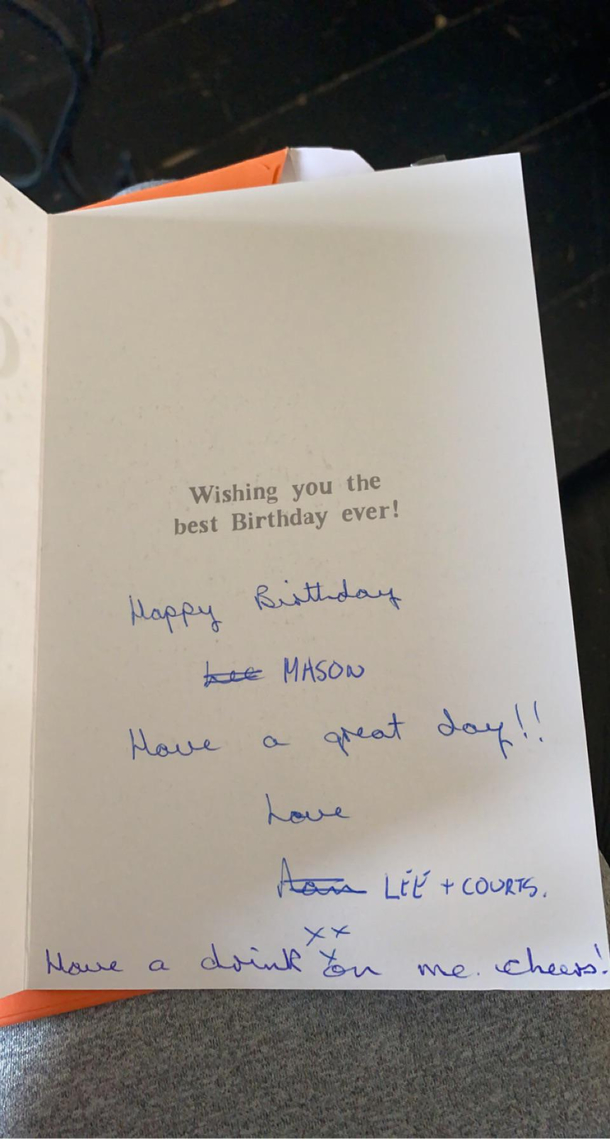 Wishing you the
best Birthday ever!
Happy Birthday
Lee MASON
Have a great day!!
Love
LEE + COURTS.
xx
x
Have a drink on me. cheers!